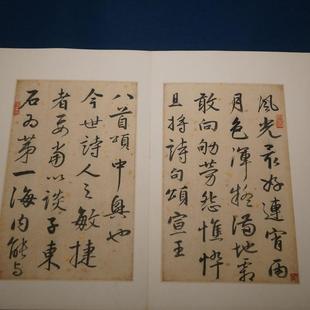 風光最好連宵雨
月色渾疑滿地霜
敢向劬勞怨憔悴
且将詩句頌宣王
八首頌中興也
今世詩人之敏捷
者要當以談子東
石为第一海内能与